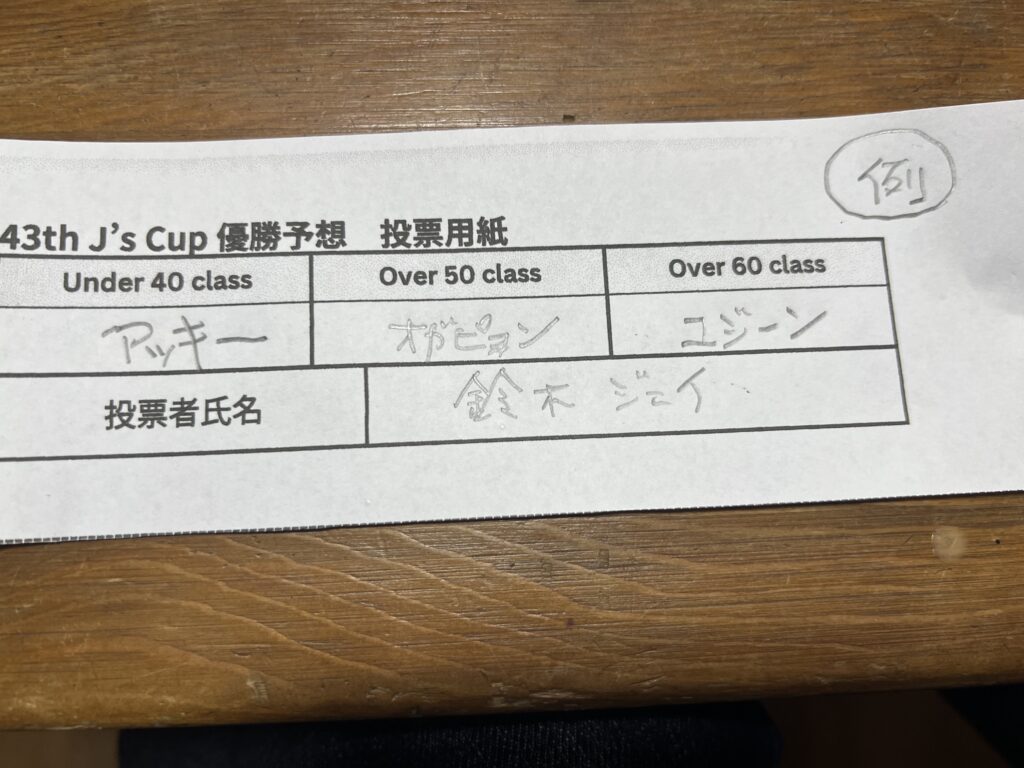 例
43th J's Cup 優勝予想 投票用紙
Under 40 class Over 50 class Over 60 class
アッキー オガピョン ユジーン
投票者氏名 鈴木 ジェイ